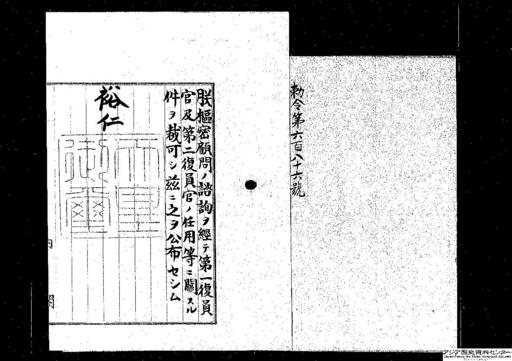 勅令第六百八十六號
朕樞密顧問ノ諮詢ヲ經テ第一復員
官及第二復員官ノ任用等ニ關スル
件ヲ裁可シ茲ニ之ヲ公布セシム
裕仁
天皇
御璽
内閣
アジア歴史資料センター